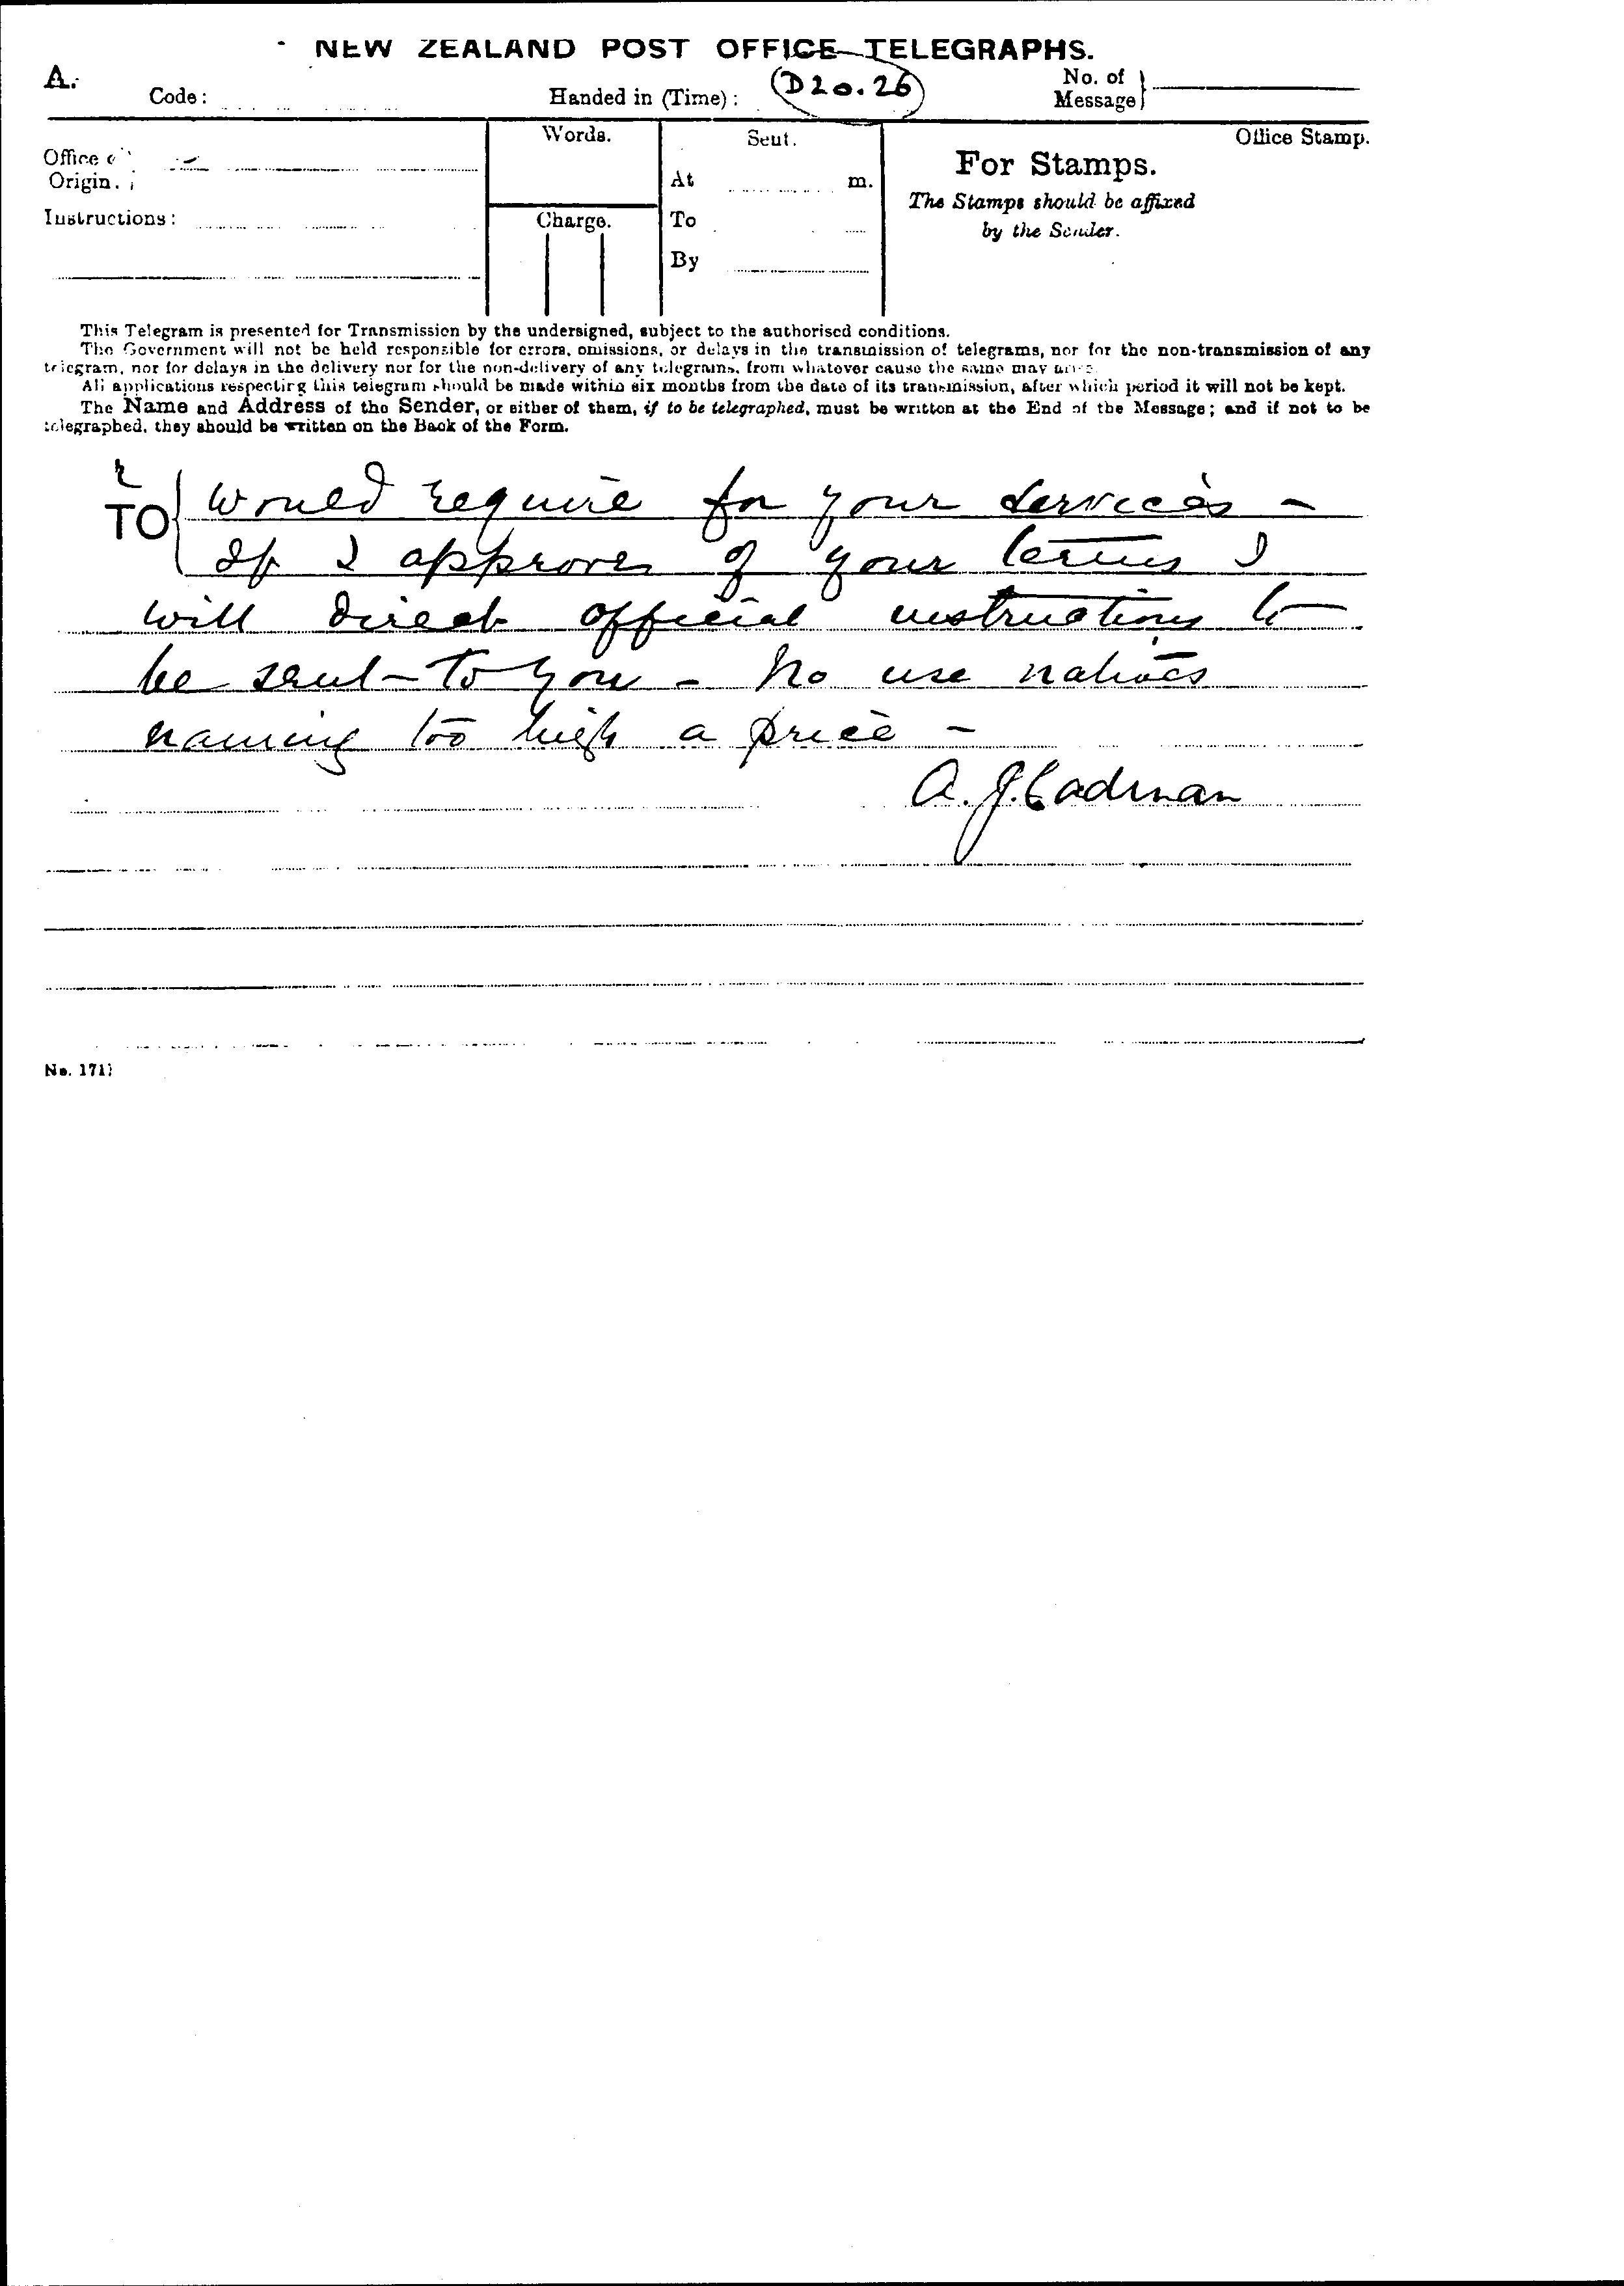 NEW ZEALAND POST OFFICE TELEGRAPHS.
A.
Code:
Handed in (Time):
D20.26
No. of
Message
Office
Origin.
Instructions:
Words.
Charge.
Sent.
At m.
To
By
Office Stamp.
For Stamps.
The Stamps should be affixed
by the Sender.
This Telegram is presented for Transmission by the undersigned, subject to the authorised conditions.
The Government will not be held responsible for errors, omissions, or delays in the transmission of telegrams, nor for the non-transmission of any
telegram, nor for delays in the delivery nor for the non-delivery of any telegrams, from whatever cause the same may arise.
All applications respecting this telegram should be made within six months from the date of its transmission, after which period it will not be kept.
The Name and Address of the Sender, or either of them, if to be telegraphed, must be written at the End of the Message; and if not to be
telegraphed, they should be written on the Back of the Form.
2
TO
would require for your services -
If I approve of your terms I
will direct official instructions to
be sent to you - No use natives
naming too high a price -
A. J. Cadman
No. 171